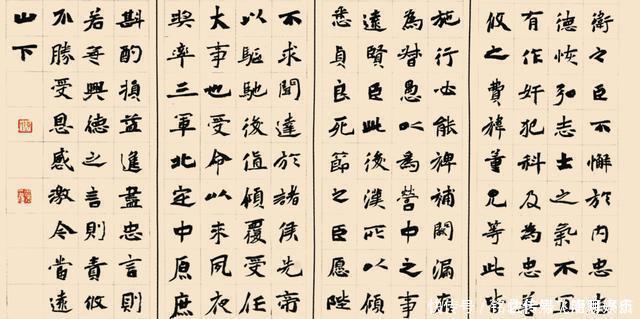 衛之臣不懈於内忠
德恢弘志士之氣不
有作奸犯科及為忠
攸之費禕董允等此
施行必能裨補闕漏
為督愚以為營中之事
遠賢臣此後漢所以傾
悉貞良死節之臣愿陛
不求聞達於諸侯先帝
以驅馳後值傾覆受任
大事也受命以來夙夜
獎率三軍北定中原庶
斟酌損益進盡忠言則
若無興德之言則責攸
不勝受恩感激今當遠
山下
快传号